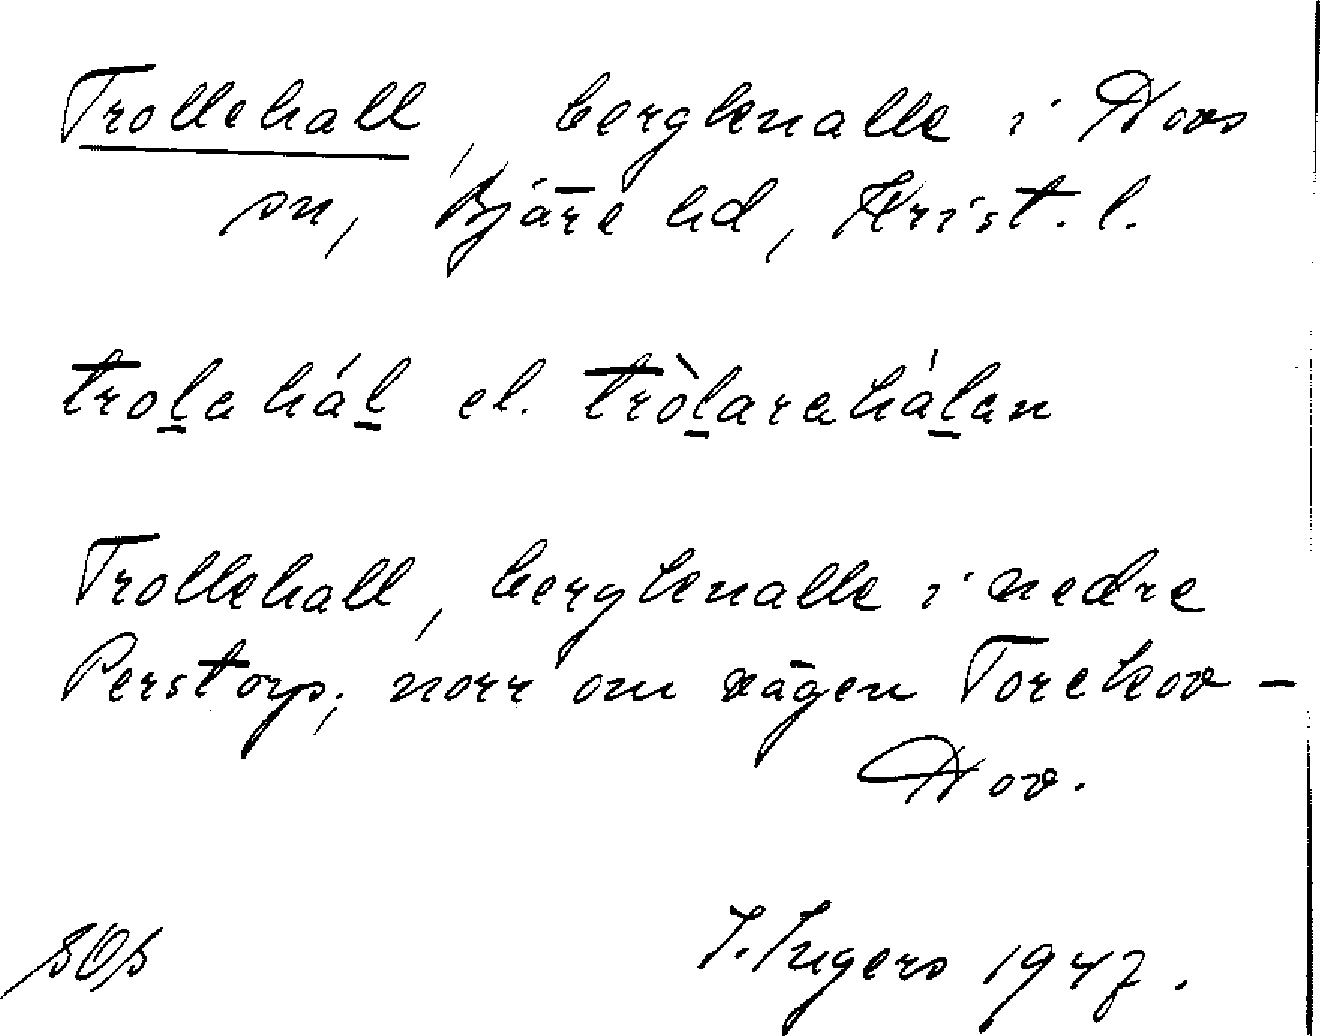 Trollehall, bergknalle i Hovs
sn, Bjäre hd, Krist. l.
trolahál el. tròlarahálan
Trollehall, bergknalle i nedre
Perstorp; norr om vägen Torekov –
Hov.
I. Ingers 1947.